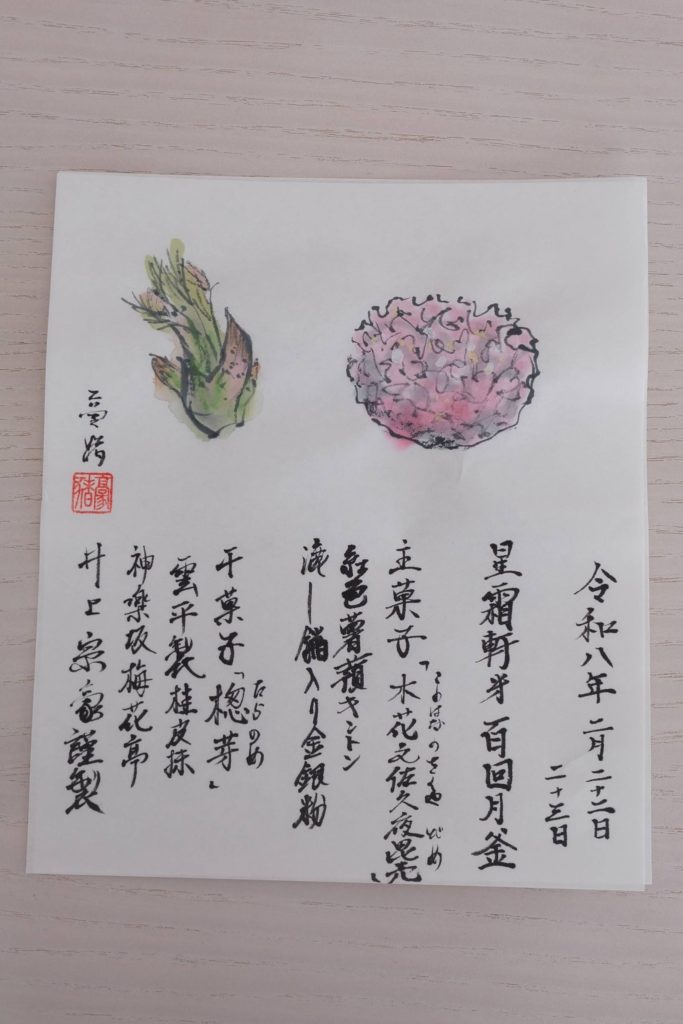 令和八年二月二十二日
二十三日
星霜軒才百回月釜
主菓子「木花之佐久夜毘売」
このはなのさくやびめ
紅色薯蕷キントン
漉し餡入り金銀粉
干菓子「楤芽」
たらのめ
雲平製桂皮抹
神楽坂梅花亭
井上宗豪謹製